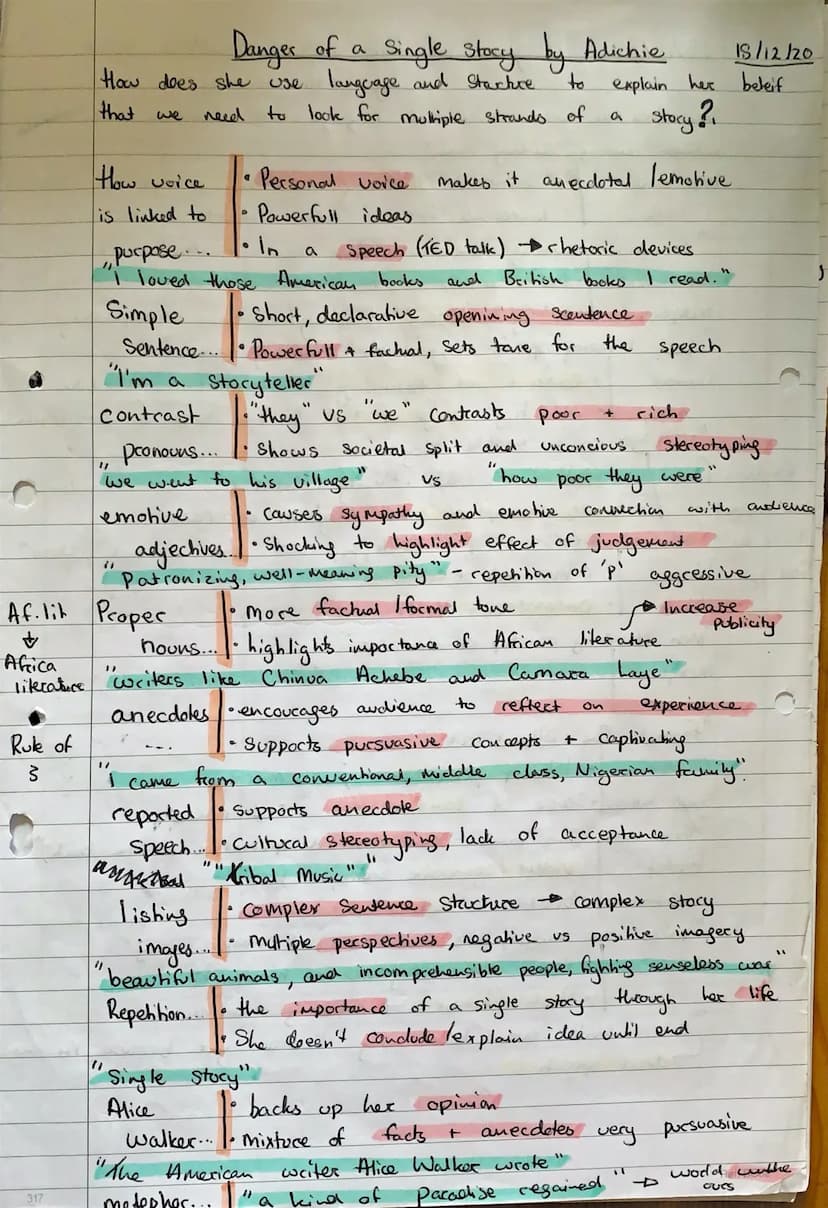 Danger of a Single Story by Adichie 18/12/20
How does she use language and Stucture to explain her beleif
that we need to look for multiple strands of a story?
How voice • Personal voice makes it anecdotal /emotive
is linked to • Powerfull ideas
purpose... • In a speech (TED talk) → rhetoric devices
"I loved those American books and British books I read."
Simple • Short, declarative openining Scentence
Sentence... • Powerfull + factual, sets tone for the speech
"I'm a storyteller"
contrast • "they" vs "we" contrasts poor + rich
pronouns... • Shows societal split and unconcious stereotyping
"we went to his village" vs "how poor they were"
emotive • causes sympathy and emotive connection with audience
adjectives.. • Shocking to highlight effect of judgement
"Patronizing, well-meaning pity" - repetition of 'p' aggressive
Af.lit Proper • more factual /formal tone → Increase
Publicity
↓ nouns... • highlights importance of African literature
Africa
literature "writers like Chinua Achebe and Camara Laye"
anecdotes • encourages audience to reflect on experience
Rule of .... • Supports pursuasive concepts + captivating
3 "I came from a conventional, middle class, Nigerian family".
reported • Supports anecdote
Speech... • Cultural stereotyping, lack of acceptance
""tribal Music" "
listing • Complex Sentence Structure → complex story
images... • Multiple perspectives, negative vs positive imagery
"beautiful animals, and incomprehensible people, fighting senseless war"
Repetition... • the importance of a single story through her life
• She doesn't conclude /explain idea until end
"Single Story"
Alice • backs up her opinion
Walker... • mixture of facts + anecdotes very pursuasive
"The American writer Alice Walker wrote"
317 metaphor... "a kind of Paradise regained" → world
ours